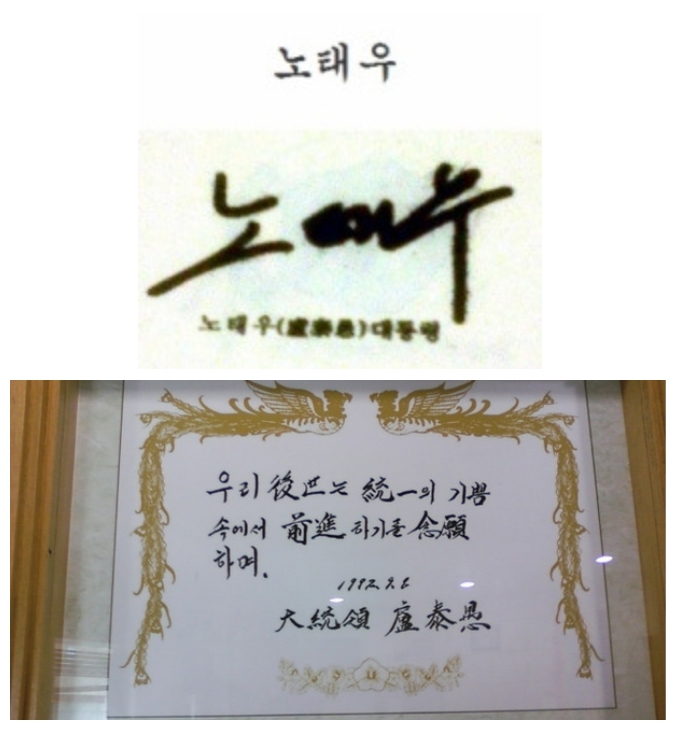 노태우
노태우
노태우(盧泰愚)대통령
우리 後世는 統一의 기쁨
속에서 前進하기를 念願
하며.
1992.9.6
大統領 盧泰愚